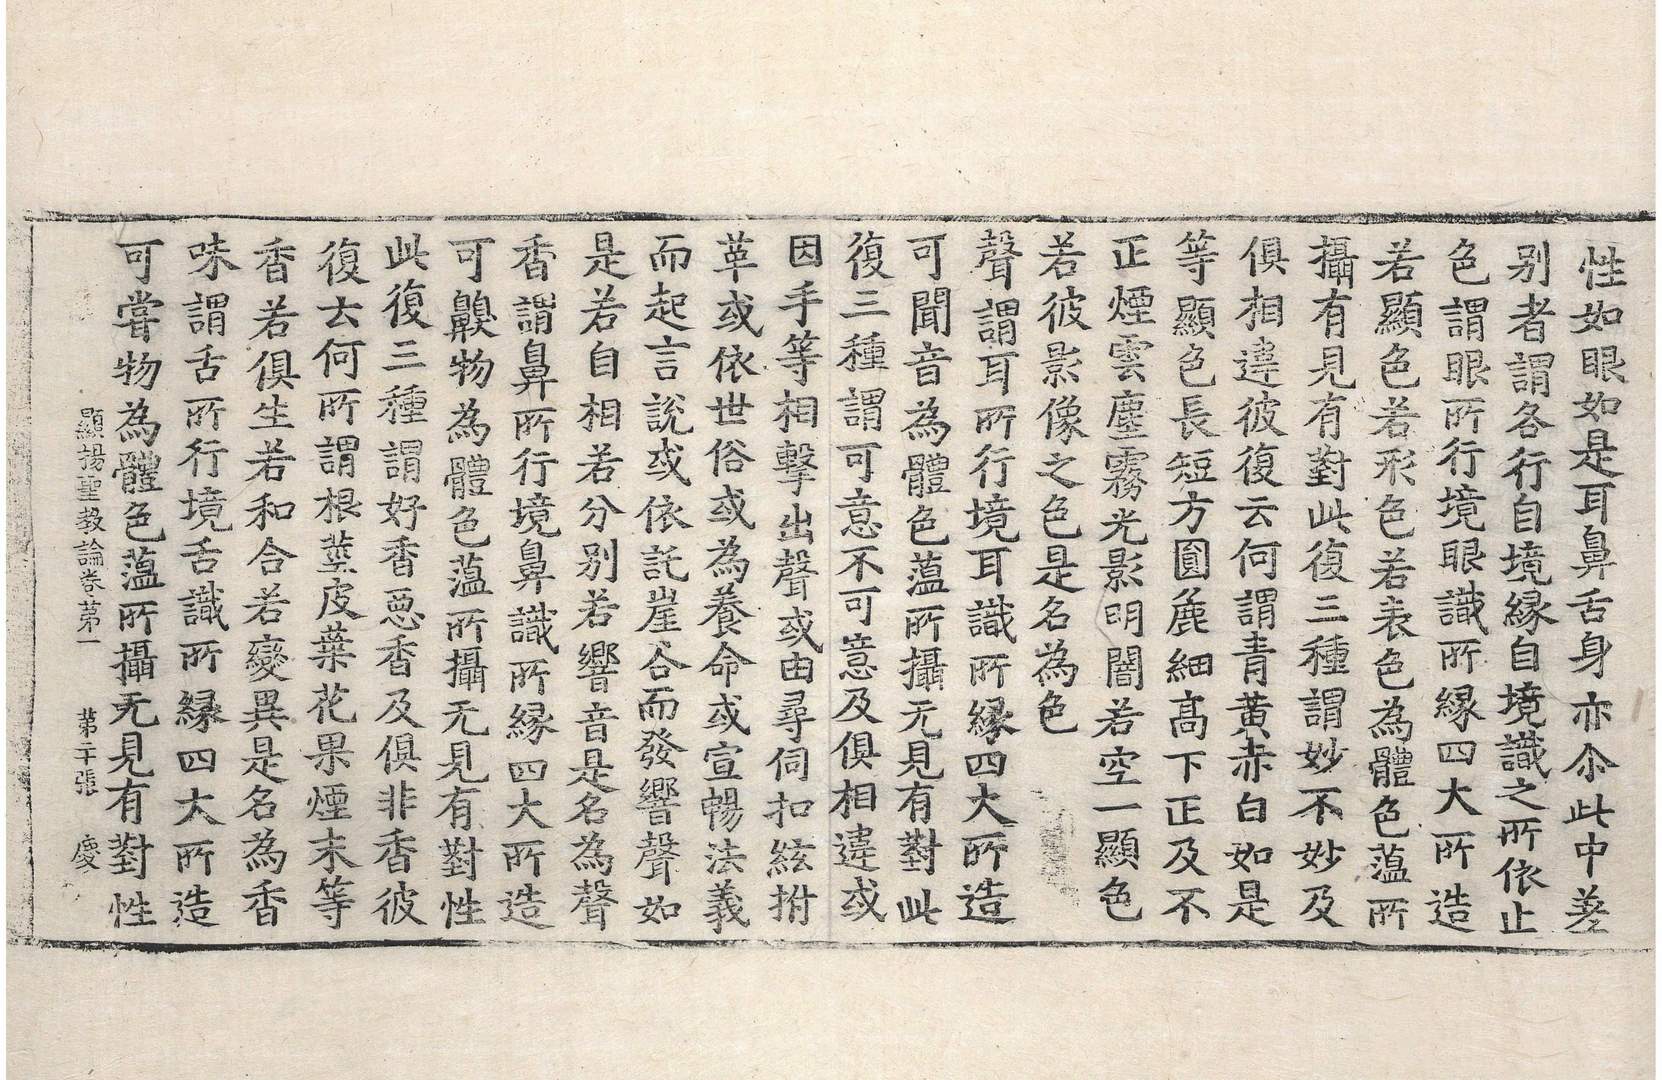 性如眼如是耳鼻舌身亦尒此中差
別者謂各行自境縁自境識之所依止
色謂眼所行境眼識所縁四大所造
若顯色若形色若表色為體色薀所
攝有見有對此復三種謂妙不妙及
俱相違彼復云何謂青黃赤白如是
等顯色長短方圓麁細髙下正及不
正煙雲塵霧光影明闇若空一顯色
若彼影像之色是名為色
聲謂耳所行境耳識所縁四大所造
可聞音為體色薀所攝无見有對此
復三種謂可意不可意及俱相違或
因手等相擊出聲或由尋伺扣絃拊
革或依世俗或為養命或宣暢法義
而起言說或依託崖谷而發響聲如
是若自相若分別若響音是名為聲
香謂鼻所行境鼻識所縁四大所造
可齅物為體色薀所攝无見有對性
此復三種謂好香惡香及俱非香彼
復云何所謂根莖皮葉花果煙末等
香若俱生若和合若變異是名為香
味謂舌所行境舌識所縁四大所造
可甞物為體色薀所攝无見有對性
顯揚聖教論卷苐一 苐二十張 慶